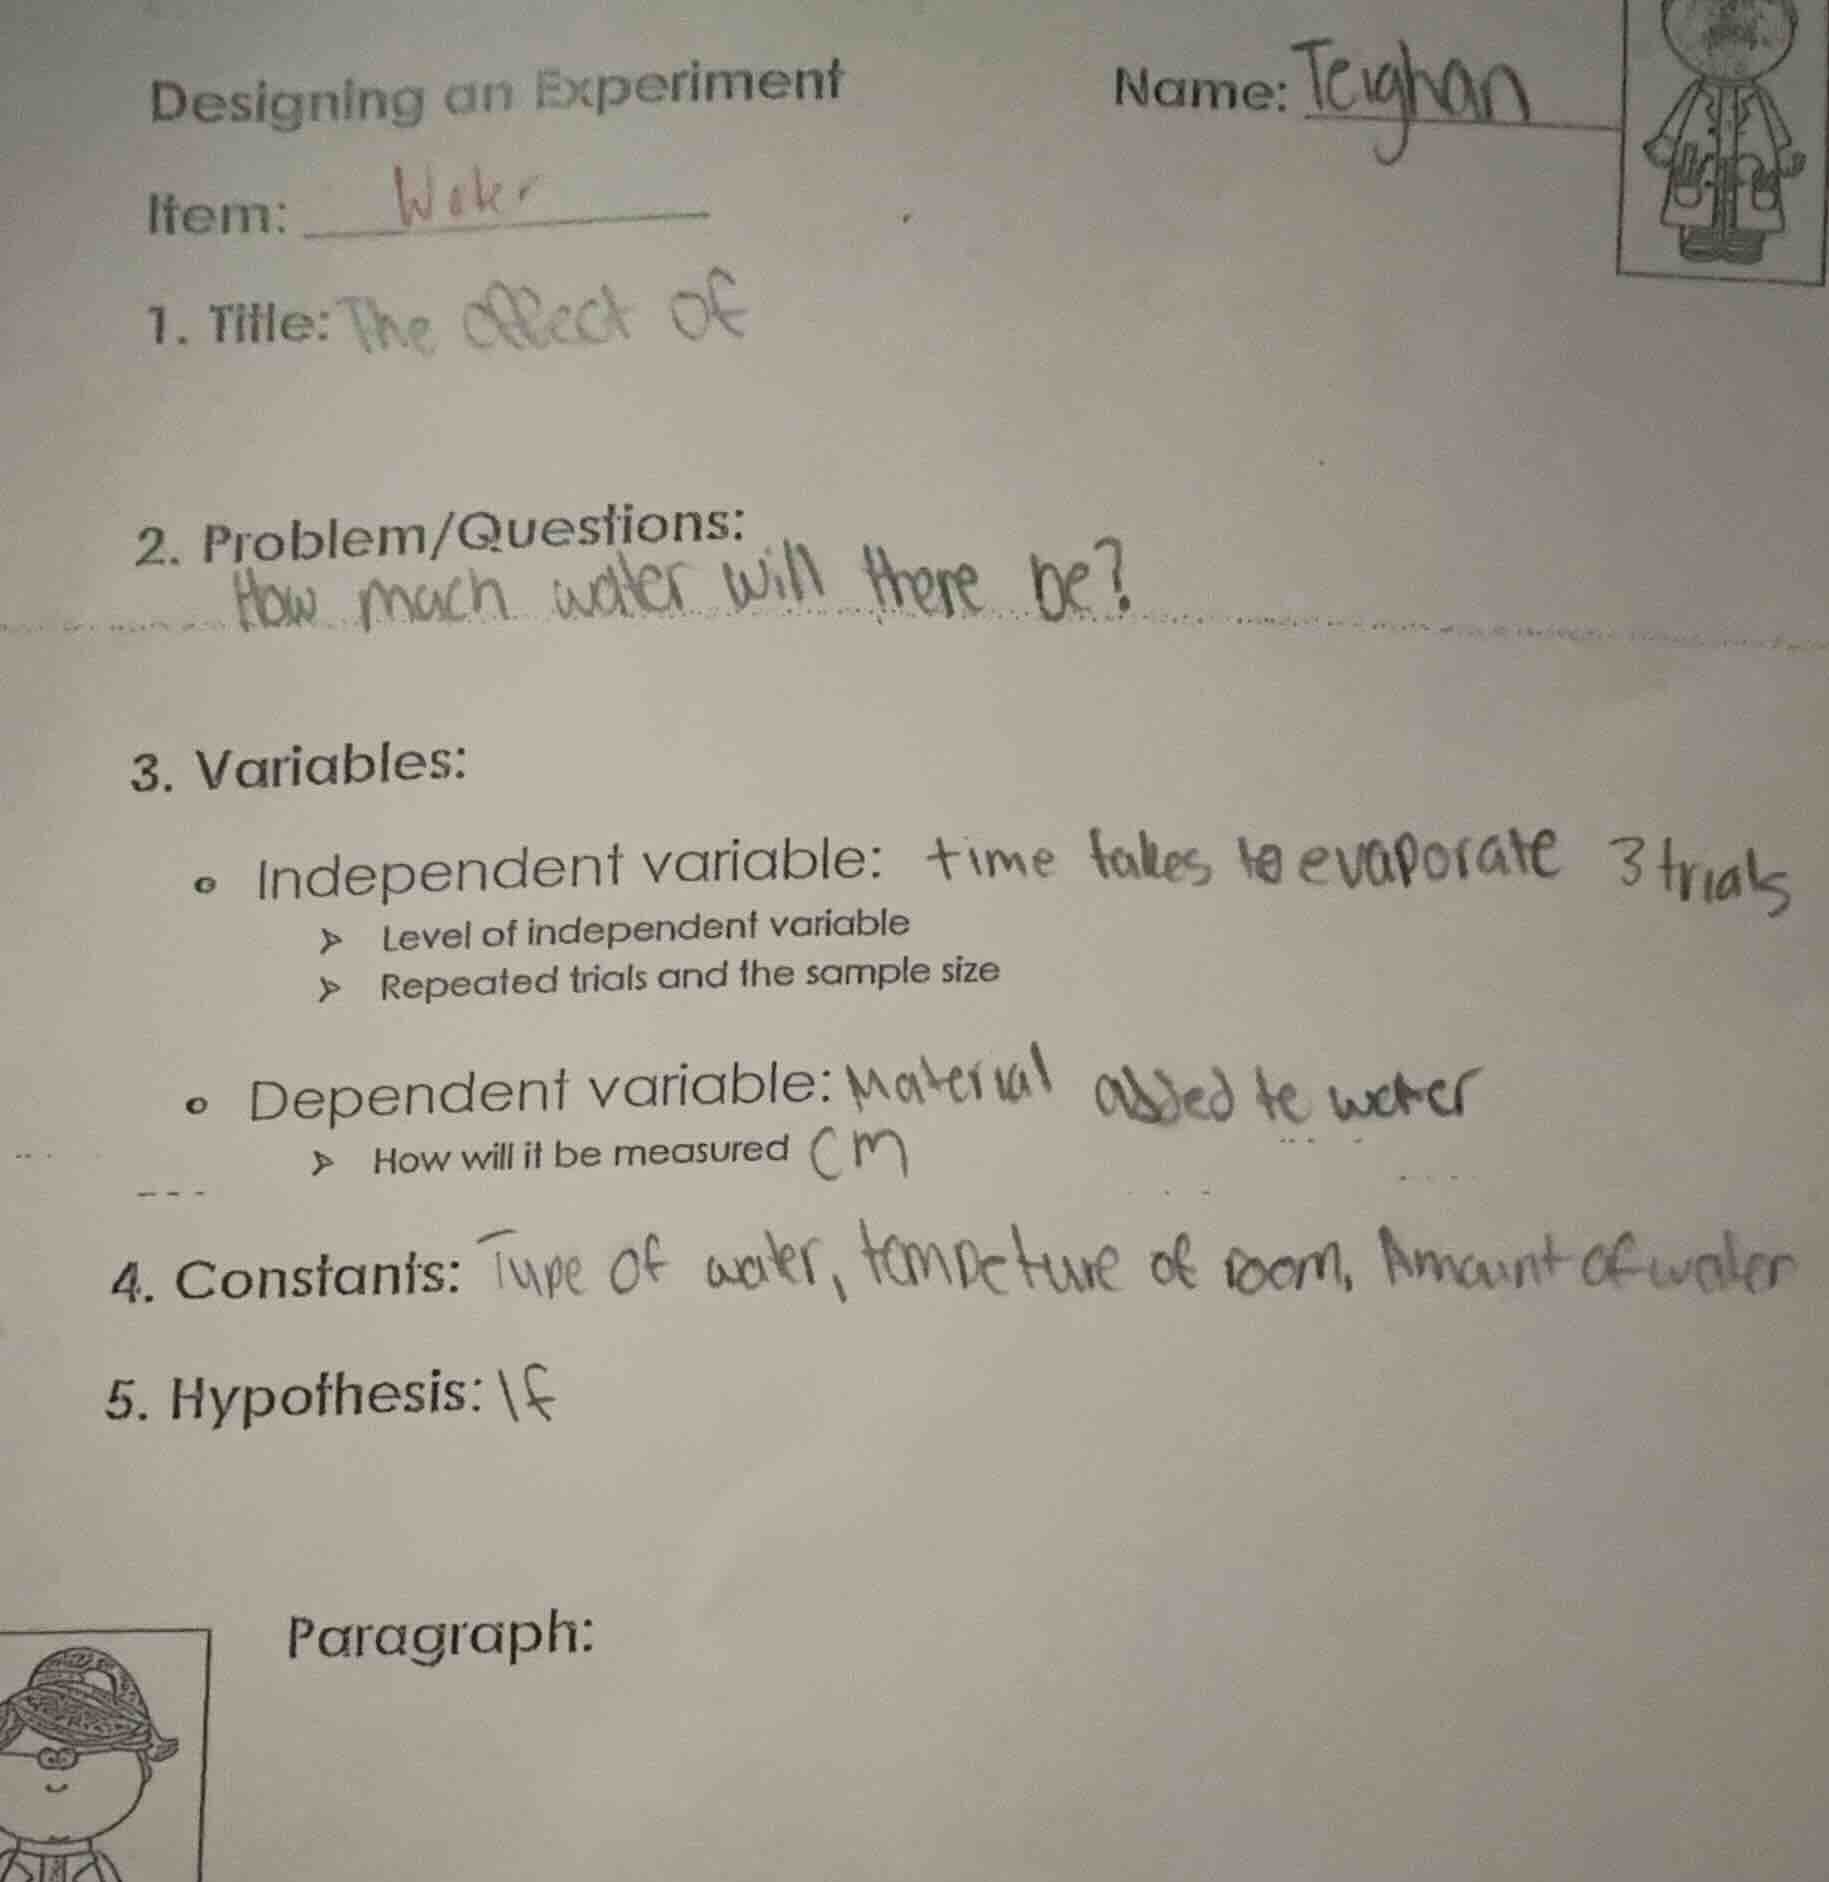 Designing an Experiment Name: Teighan
Item: Water
1. Title: The effect of
2. Problem/Questions:
How mach water will there be?
3. Variables:
Independent variable: time takes to evaporate 3 trials
➢ Level of independent variable
➢ Repeated trials and the sample size
Dependent variable: Material added to water
➢ How will it be measured cm
4. Constants: Type of water, tempeture of room, Amount of water
5. Hypothesis: If
Paragraph: